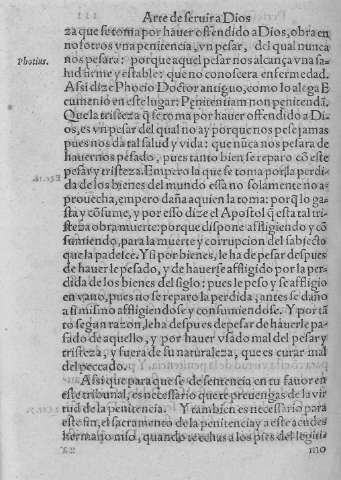 Arte de seruir a Dios
za que se toma por hauer offendido a Dios, obra en
nosotros vna penitencia, vn pesar, del qual nunca
nos pesara: porque aquel pesar nos alcança vna sa-
Photius.
lud firme y estable: que no conoscera enfermedad.
Assi dize Phocio Doctor antiguo, como lo alega E
cumenio en este lugar: Penitentiam non penitendā.
Que la tristeza q̃ se toma por hauer offendido a Di-
os, es vn pesar del qual no ay porque nos pese jamas
pues nos da tal salud y vida: que nūca nos pesara de
hauernos pesado, pues tanto bien se reparo cō este
pesar y tristeza. Empero la que se toma por la perdi-
da de los bienes del mundo essa no solamente no a-
prouecha, empero daña a quien la toma: porq̃ lo ga-
sta y cōsume, y por esso dize el Apostol q̃ esta tal tri-
steza obra muerte: porque dispone affligiendo y cō
sumiendo, para la muerte y corrupcion del subjecto
que la padece. Y si por bienes, le ha de pesar despues
de hauerle pesado, y de hauerse affligido por la per-
dida de los bienes del siglo: pues le peso y se affligio
en vano, pues no se reparo la perdida, antes se daño
a si mismo affligiendose y consumiendose. Y por tā
to segun razon, le ha despues de pesar de hauerle pe-
sado de aquello, y por hauer vsado mal del pesar y
tristeza, y fuera de su naturaleza, que es curar mal
del peccado.
Assi que para que se de sentencia en tu fauor en
este tribunal, es necessario que te preuengas de la vir
tud de la penitencia. Y tambien es necessario para
este fin, el sacramento de la penitencia y a este acudes
hermano mio, quando te echas a los pies del legiti-
mo